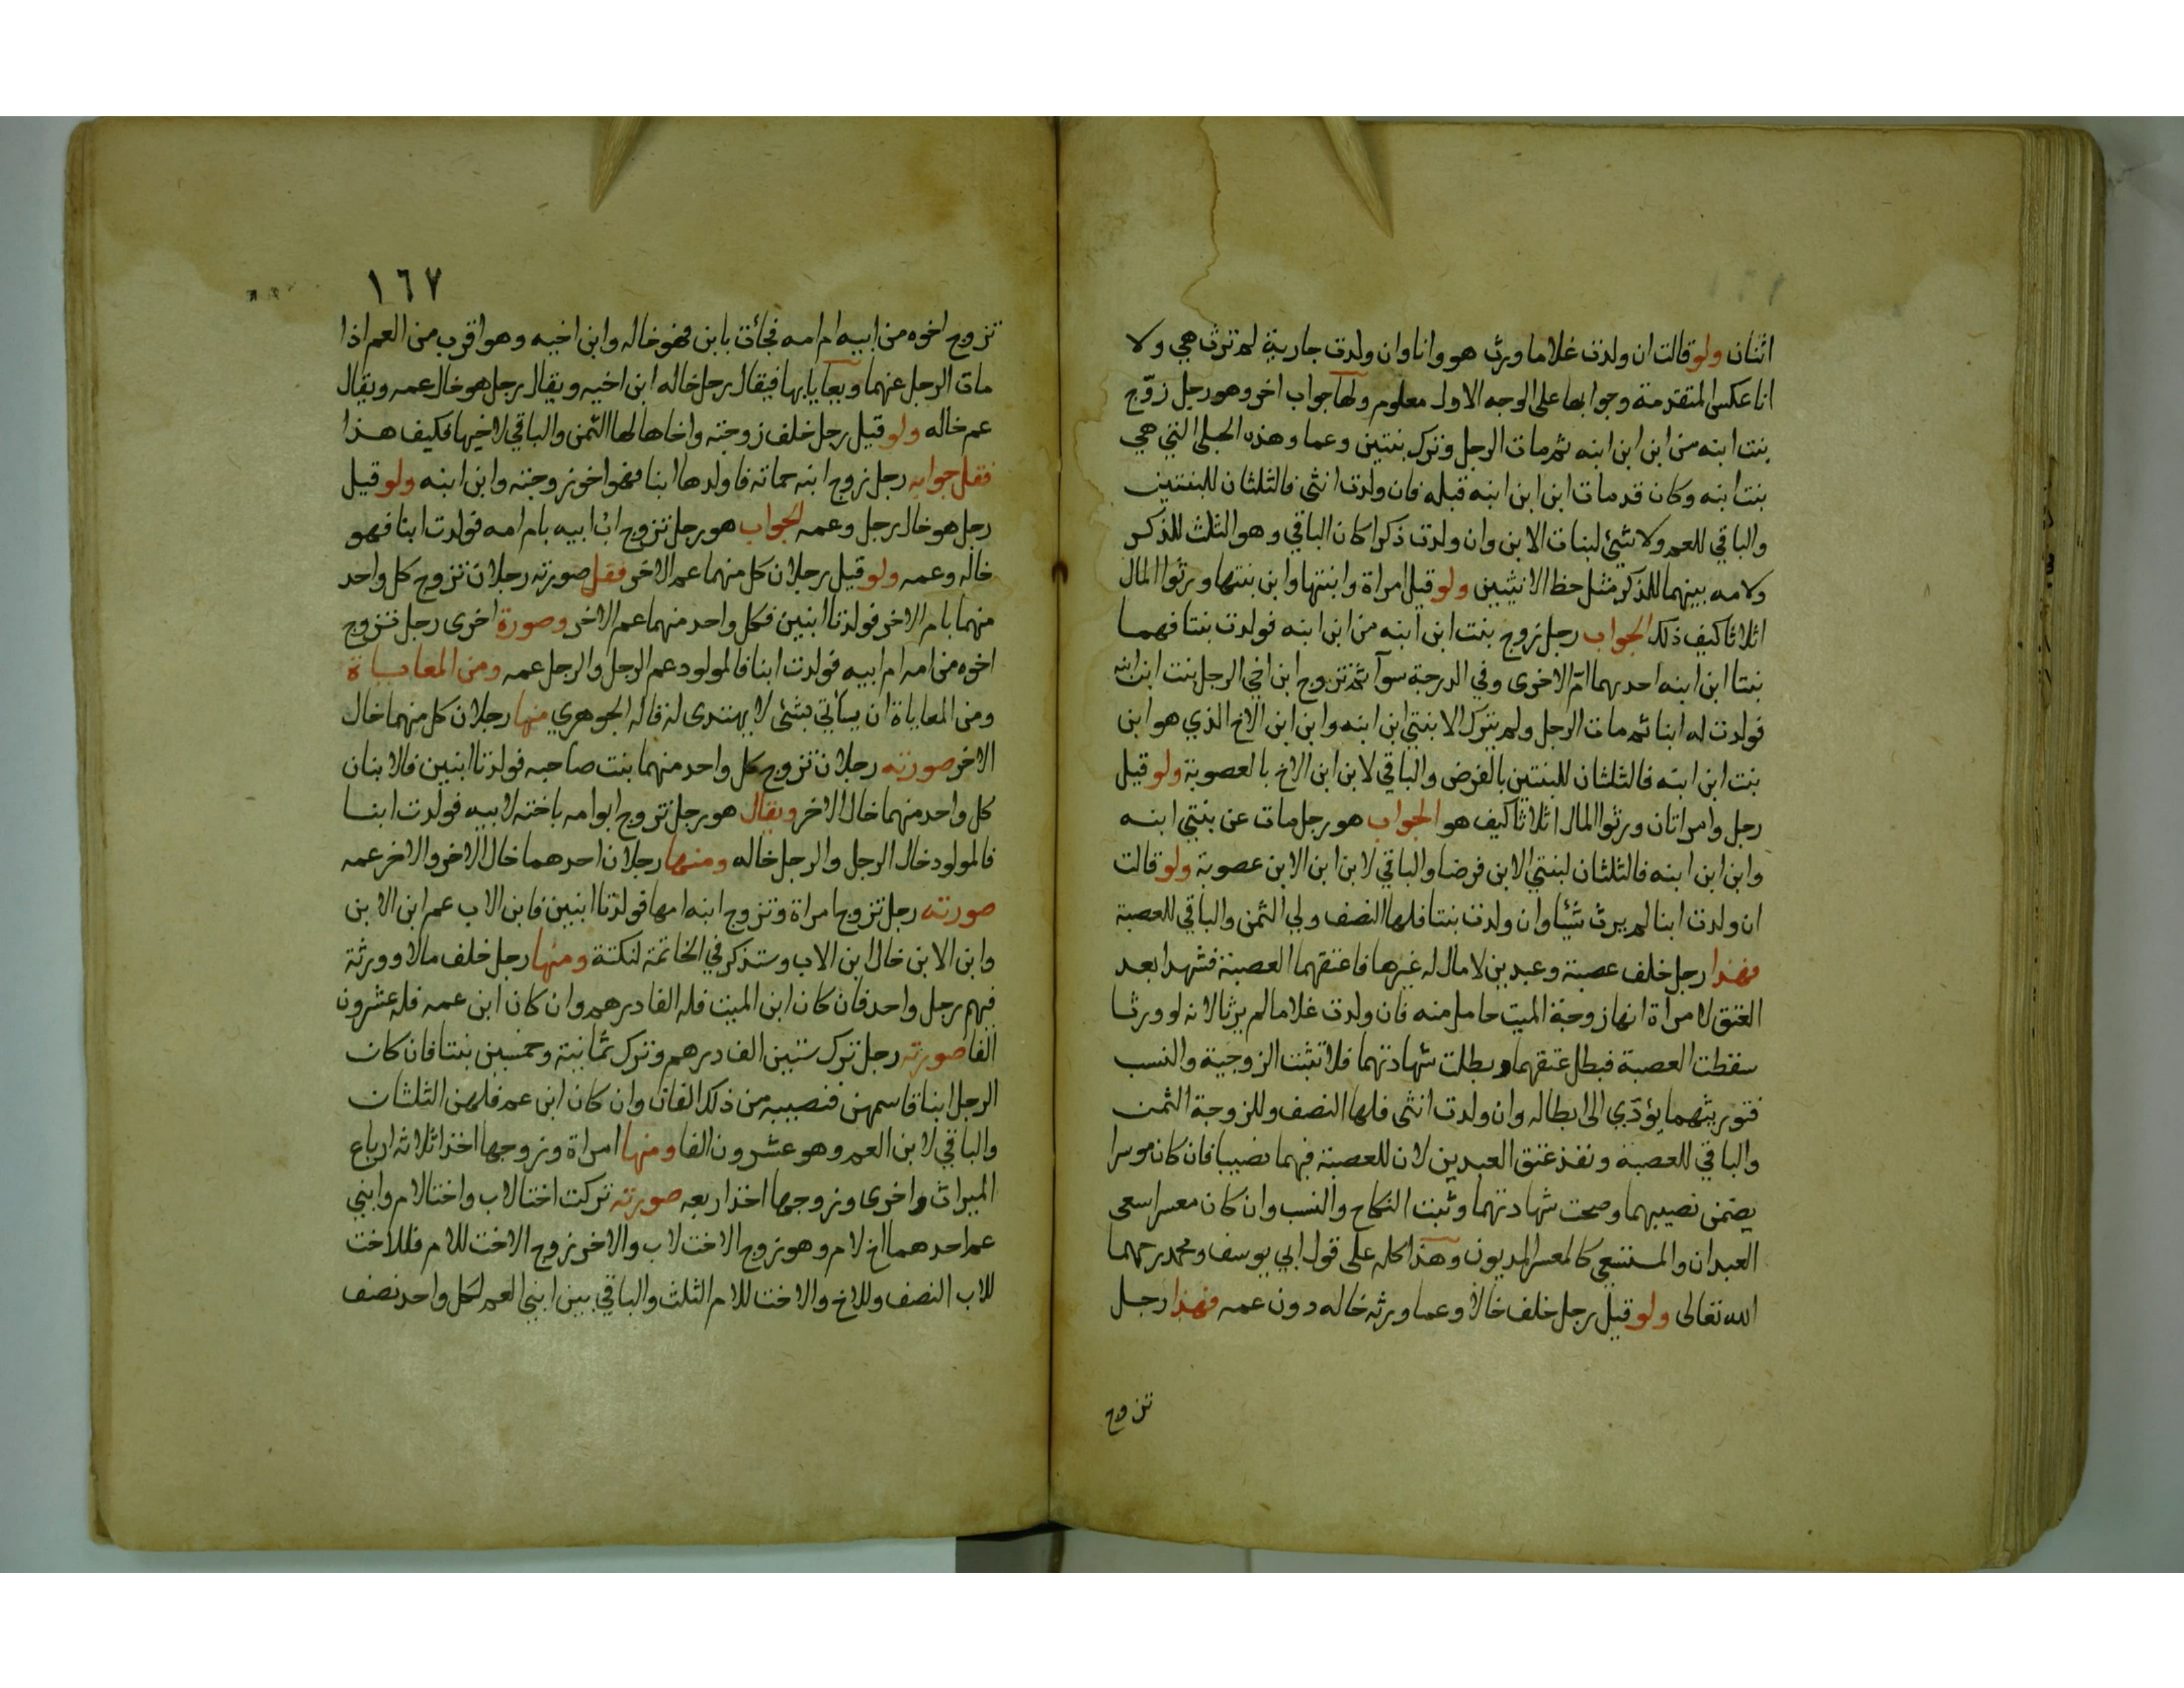 اثنان ولو قالت ان ولدت غلاما ورث هو وانا وان ولدت جارية لم ترث هي ولا
انا عكس المتقدمة وجوابها على الوجه الاول معلوم ولها جواب اخر وهو رجل زوّج
بنت ابنه من ابن ابن ابنه ثم مات الرجل وترك بنتين وعما وهذه الحبلى التي هي
بنت ابنه وكان قد مات ابن ابن ابنه قبله فان ولدت انثى فالثلثان للبنتين
والباقي للعم ولا شيئ لبنات الابن وان ولدت ذكرا كان الباقي وهو الثلث للذكر
ولامه بينهما للذكر مثل حظ الانثيين ولو قيل امراة وابنتها وابن بنتها ورثوا المال
اثلاثا كيف ذلك الجواب رجل زوج بنت ابن ابنه من ابن ابنه فولدت بنتا فهما
بنتا ابن ابنه احديهما امّ الاخرى وفي الدرجة سوآ ثم تزوج ابن اخي الرجل بنت ابن ابنه
فولدت له ابنا ثم مات الرجل ولم يترك الا بنتي ابن ابنه وابن ابن الاخ الذي هو ابن
بنت ابن ابنه فالثلثان للبنتين بالفرض والباقي لابن ابن الاخ بالعصوبة ولو قيل
رجل وامراتان ورثوا المال اثلاثا كيف هو الجواب هو رجل مات عن بنتي ابنه
وابن ابن ابنه فالثلثان لبنتي الابن فرضا والباقي لابن ابن الابن عصوبة ولو قالت
ان ولدت ابنا لم يرث شيئا وان ولدت بنتا فلها النصف ولي الثمن والباقي للعصبة
فهذا رجل خلف عصبة وعبدين لا مال له غيرها فاعتقهما العصبة فشهدا بعد
العتق لامراة انها زوجة الميت حامل منه فان ولدت غلاما لم يرثا لانه لو ورثا
سقطت العصبة فبطل عتقهما وبطلت شهادتهما فلا تثبت الزوجية والنسب
فتوريثهما يؤدّي الى ابطاله وان ولدت انثى فلها النصف وللزوجة الثمن
والباقي للعصبة ونفذ عتق العبدين لان للعصبة فيهما نصيبا فان كان موسرا
يضمن نصيبهما وصحت شهادتهما وثبت النكاح والنسب وان كان معسرا سعى
العبدان والمستسعى كالمعسر المديون وهذا كله على قول ابي يوسف ومحمد رحمهما
الله تعالى ولو قيل رجل خلف خالا وعما ورثه خاله دون عمه فهذا رجل
تزوج
١٦٧
تزوج اخوه من ابيه ام امه فجائت بابن فهو خاله وابن اخيه وهو اقرب من العم اذا
مات الرجل عنهما ويعايا بها فيقال رجل خاله ابن اخيه ويقال رجل هو خال عمه ويقال
عم خاله ولو قيل رجل خلف زوجته واخاها لها الثمن والباقي لاخيها فكيف هذا
فقل جوابه رجل زوج ابنه حماته فاولدها ابنا فهو اخو زوجته وابن ابنه ولو قيل
رجل هو خال رجل وعمه الجواب هو رجل تزوج اب ابيه بام امه فولدت ابنا فهو
خاله وعمه ولو قيل رجلان كل منهما عم الاخر فقل صورته رجلان تزوج كل واحد
منهما بام الاخر فولدتا ابنين فكل واحد منهما عم الاخر وصورة اخرى رجل تزوج
اخوه من امه ام ابيه فولدت ابنا فالمولود عم الرجل والرجل عمه ومن المعاياة
ومن المعاياة ان يأتي بشئ لا يهتدى له قاله الجوهري منها رجلان كل منهما خال
الاخر صورته رجلان تزوج كل واحد منهما بنت صاحبه فولدتا ابنين فالابنان
كل واحد منهما خال الاخر ويقال هو رجل تزوج ابو امه باخته لابيه فولدت ابنا
فالمولود خال الرجل والرجل خاله ومنها رجلان احدهما خال الاخر والاخر عمه
صورته رجل تزوج امراة وتزوج ابنه امها فولدتا ابنين فابن الاب عم ابن الابن
وابن الابن خال ابن الاب وستذكر في الخاتمة لنكتة ومنها رجل خلف مالا وورثة
فيهم رجل واحد فان كان ابن الميت فله الفا درهم وان كان ابن عمه فله عشرون
الفا صورته رجل ترك ستين الف درهم وترك ثمانية وخمسين بنتا فان كان
الرجل ابنا قاسمهن فنصيبه من ذلك الفان وان كان ابن عم فلهن الثلثان
والباقي لابن العم وهو عشرون الفا ومنها امراة وزوجها اخذا ثلاثه ارباع
الميراث واخرى وزوجها اخذا ربعه صورته تركت اختا لاب واختا لام وابني
عم احدهما اخ لام وهو زوج الاخت لاب والاخر زوج الاخت للام فللاخت
للاب النصف وللاخ والاخت للام الثلث والباقي بين ابني العم لكل واحد نصف